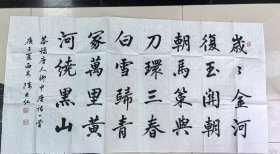 歲〻金河
復玉関朝
朝馬策與
刀環三春
白雪歸青
冢萬里黃
河繞黑山
唐人柳中庸詩一首
庚子夏